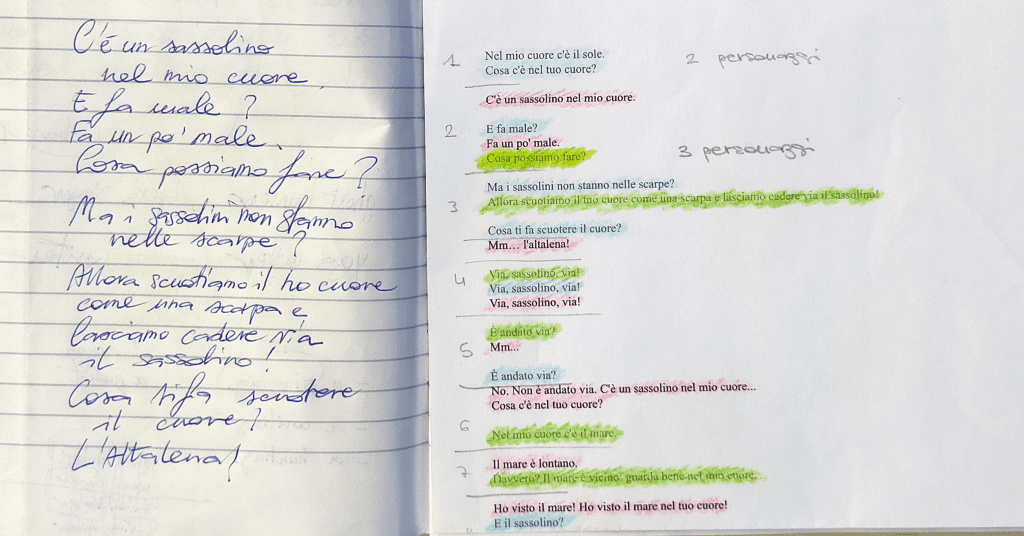 C'è un sassolino
nel mio cuore.
E fa male?
Fa un po' male.
Cosa possiamo fare?
Ma i sassolini non stanno
nelle scarpe?
Allora scuotiamo il tuo cuore
come una scarpa e
lasciamo cadere via
il sassolino!
Cosa ti fa scuotere
il cuore?
L'Altalena!
1
Nel mio cuore c'è il sole.
2 personaggi
Cosa c'è nel tuo cuore?
C'è un sassolino nel mio cuore.
2
E fa male?
Fa un po' male.
3 personaggi
Cosa possiamo fare?
Ma i sassolini non stanno nelle scarpe?
3
Allora scuotiamo il tuo cuore come una scarpa e lasciamo cadere via il sassolino!
Cosa ti fa scuotere il cuore?
Mm... l'altalena!
4
Via, sassolino, via!
Via, sassolino, via!
Via, sassolino, via!
È andato via?
5
Mm...
È andato via?
No. Non è andato via. C'è un sassolino nel mio cuore...
Cosa c'è nel tuo cuore?
6
Nel mio cuore c'è il mare.
7
Il mare è lontano.
Davvero? Il mare è vicino: guarda bene nel mio cuore.
Ho visto il mare! Ho visto il mare nel tuo cuore!
E il sassolino?